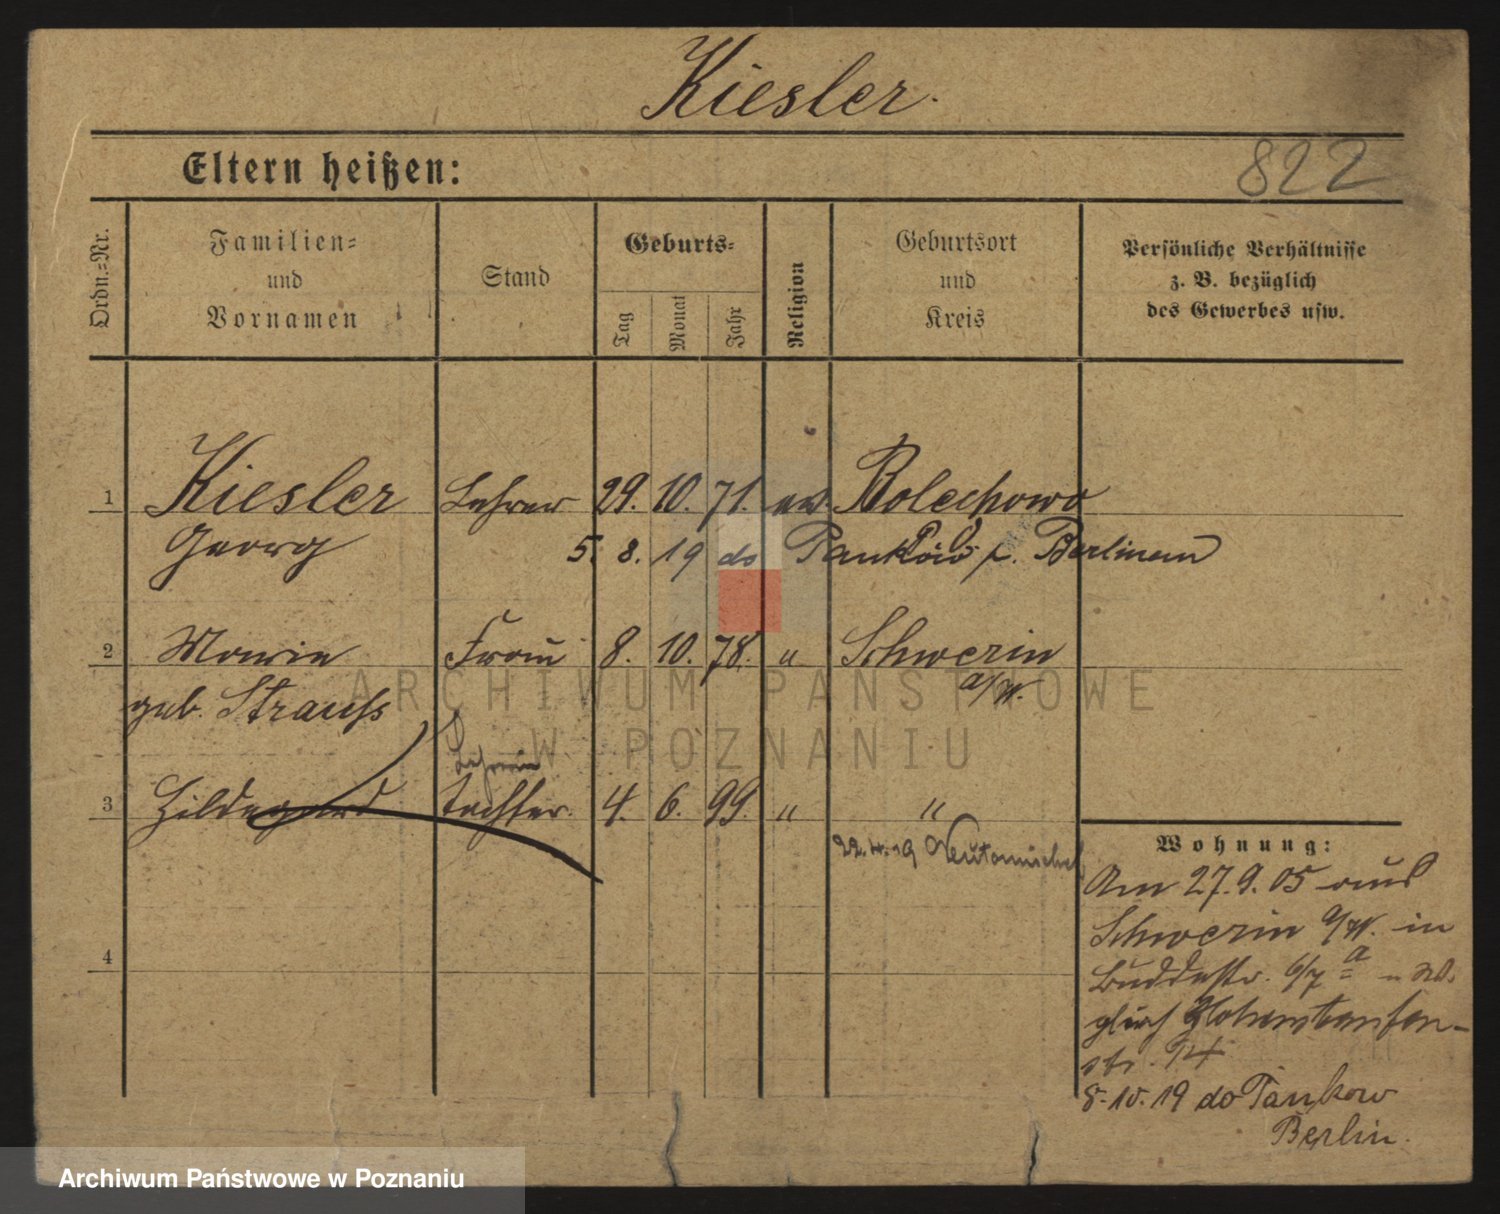 Kiesler.
Eltern heißen:
822
Ordn.=Nr.
Familien=
und
Vornamen
Stand
Geburts=
Tag
Monat
Jahr
Religion
Geburtsort
und
Kreis
Persönliche Verhältnisse
z. B. bezüglich
des Gewerbes usw.
1 Kiesler Lehrer 29. 10. 71. ev. Bolechowo
Georg
5. 8. 19 do Pankow p. Berlinem
2 Marie Frau 8. 10. 78. " Schwerin
a/W.
geb. Strauss
Lehrerin
3 Hildegard Tochter. 4. 6. 99. " "
22.4.19 Neutomischel
4
Wohnung:
Am 27.9.05 aus
Schwerin a/W. in
Buddestr. 6/7 a
Hohenstaufen-
str. 14
8.10.19 do Pankow
Berlin.
ARCHIWUM PAŃSTWOWE
W POZNANIU
Archiwum Państwowe w Poznaniu